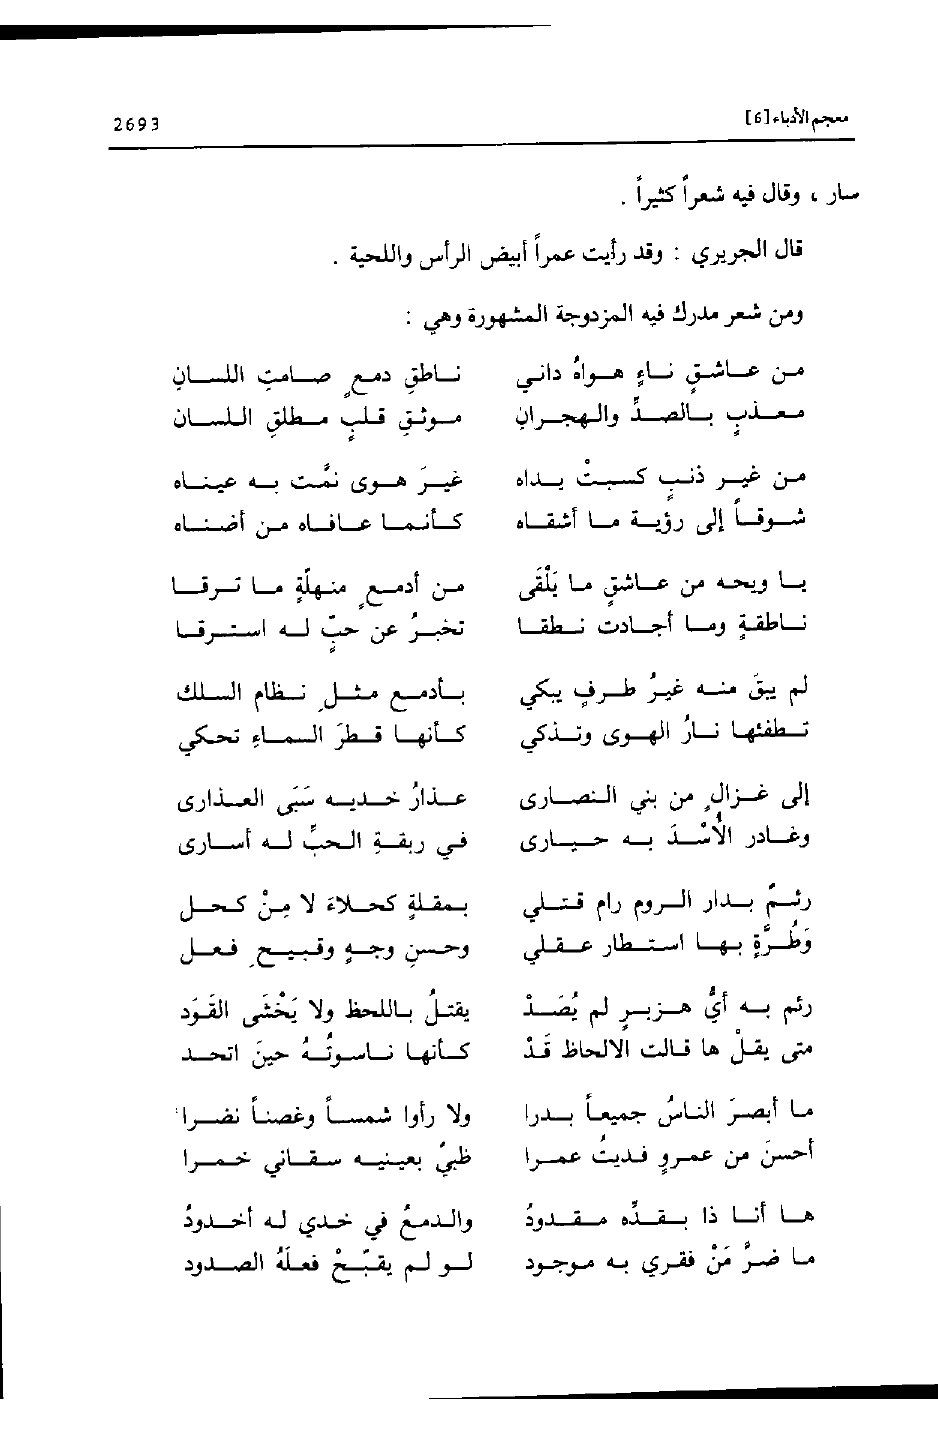 معجم الأدباء [6] 2693
سار ، وقال فيه شعراً كثيراً .
قال الجريري : وقد رأيت عمراً أبيض الرأس واللحية .
ومن شعر مدرك فيه المزدوجة المشهورة وهي :
من عاشقٍ ناءٍ هواهُ داني ناطقِ دمعٍ صامتِ اللسانِ
معذبٍ بالصدِّ والهجرانِ موثقِ قلبٍ مطلقِ اللسانِ
من غير ذنبٍ كسبتْ يداه غيرَ هوى نمَّت به عيناه
شوقاً إلى رؤية ما أشقاه كأنما عافاه من أضناه
يا ويحه من عاشقٍ ما يَلْقَى من أدمعٍ منهلَّةٍ ما ترقا
ناطقةٍ وما أجادت نطقا تخبرُ عن حبٍّ له استرقا
لم يبقَ منه غيرُ طرفٍ يبكي بأدمعٍ مثلِ نظام السلك
تطفئها نارُ الهوى وتذكي كأنها قطرُ السماءِ تحكي
إلى غزالٍ من بني النصارى عذارُ خديه سَبَى العذارى
وغادر الأسْدَ به حيارى في ربقة الحبِّ له أسارى
رئمٌ بدار الروم رام قتلي بمقلةٍ كحلاءَ لا مِنْ كحل
وَطُرَّةٍ بها استطار عقلي وحسن وجهٍ وقبيحِ فعل
رئم به أيُّ هزبرٍ لم يُصَدْ يقتلُ باللحظ ولا يَخْشَى القَوَد
متى يقلْ ها قالت الألحاظ قَدْ كأنها ناسوتُهُ حينَ اتحد
ما أبصرَ الناسُ جميعاً بدرا ولا رأوا شمساً وغصناً نضرا
أحسنَ من عمروٍ فديتُ عمرا ظبيٌ بعينيه سقاني خمرا
ها أنا ذا بقدِّه مقدودُ والدمعُ في خدي له أخدودُ
ما ضرَّ مَنْ فقري به موجود لو لم يقبِّحْ فعلَهُ الصدود